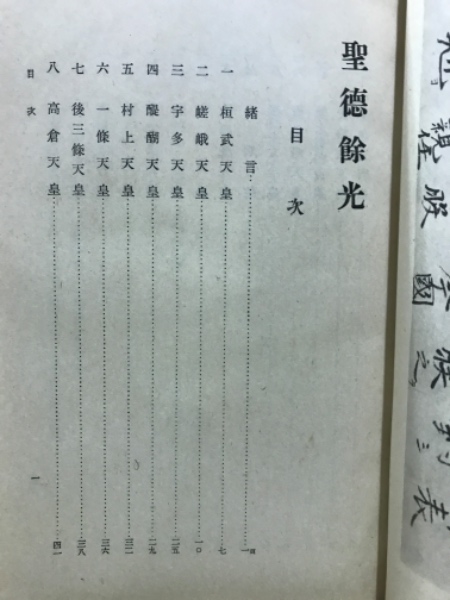 聖德餘光
目次
緒言……一
一 桓武天皇……七
二 嵯峨天皇……一〇
三 宇多天皇……二五
四 醍醐天皇……二九
五 村上天皇……三二
六 一條天皇……三六
七 後三條天皇……三八
八 高倉天皇……四一
目次
一